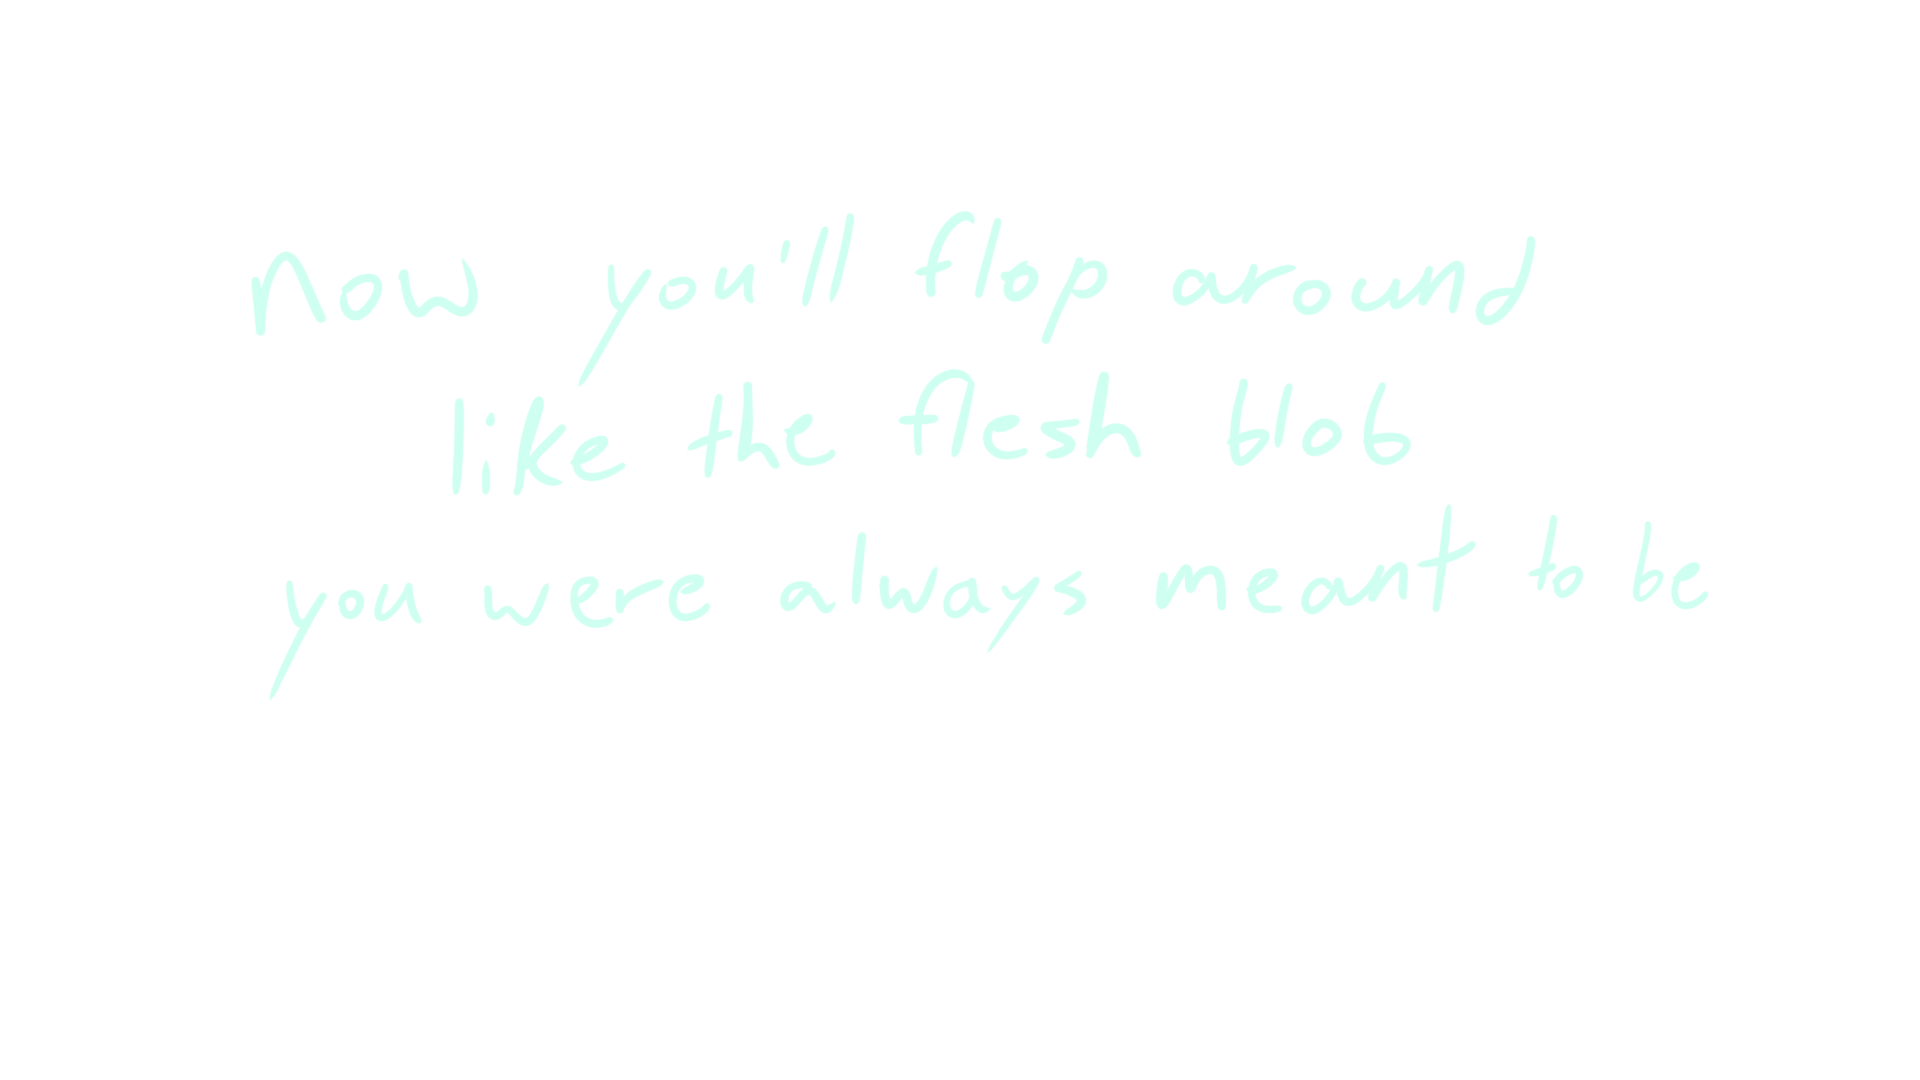 now you'll flop around
like the flesh blob
you were always meant to be